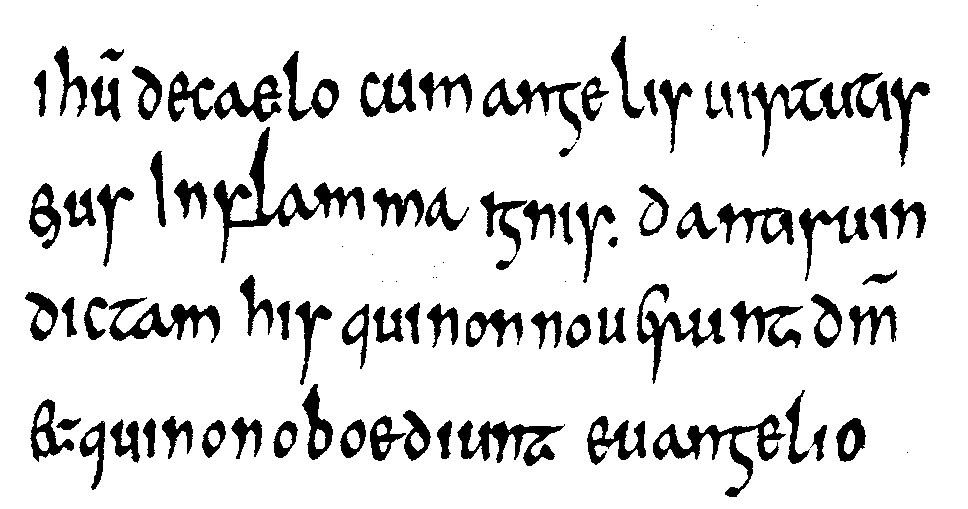 ihū decaelo cum angelis uirtutis
eius In flamma ignis. dantis uin
dictam his qui non nouerunt dm̄
et qui non oboediunt euangelio